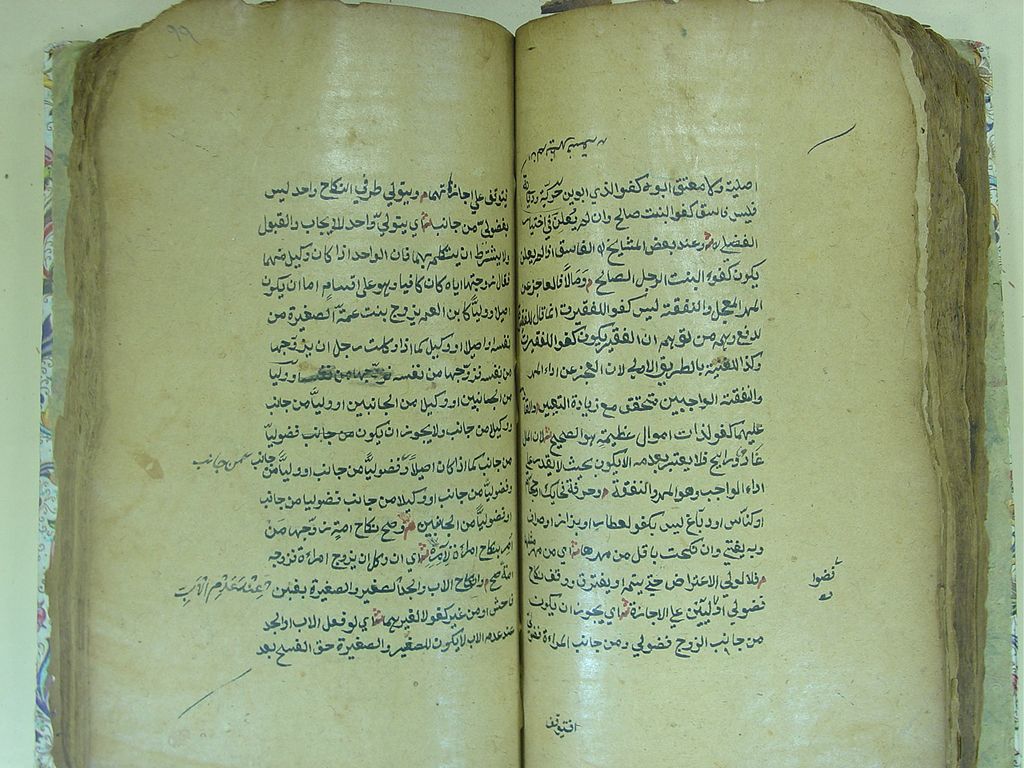 اصلية ولا معتق ابوه كفوا لذي ابوين حرية وديانة
فليس فاسق كفوا لبنت صالح وان لم يعلن في اختيار
الفضلي ش وعند بعض المشايخ ان الفاسق اذا لم يعلن
يكون كفوا لبنت الرجل الصالح م ومالا فالعاجز عن
المهر المعجل والنفقة ليس كفوا للفقيرة انما قال للفقيرة
لدفع وهم من توهم ان الفقير يكون كفوا للفقيرة
وكذا للغنية بالطريق الاولى لان العجز عن اداء المهر
والنفقة الواجبين متحقق مع زيادة التعيير م والقادر
عليهما كفو لذات اموال عظيمة هو الصحيح ش لان المال
غاد ورائح فلا يعتبر بعدمه الا يكون بحيث لا يقدر على
اداء الواجب وهو المهر والنفقة م وحرفة فحائك او حجام
او كناس او دباغ ليس بكفو لعطار او بزاز او صراف
وبه يفتى وان نكحت باقل من مهرها ش اي من مهر مثلها
م فللولي الاعتراض حتى يتم او يفرق ووقف نكاح
فضولي او فضوليين على الاجازة ش اي يجوز ان يكون
من جانب الزوج فضولي ومن جانب المراة فضولي
فضوا
افيتوقف
99
فيتوقف على اجازتهما م ويتولى طرفي النكاح واحد ليس
بفضولي من جانب ش اي يتولى واحد للايجاب والقبول
ولا يشترط ان يتكلم بهما فان الواحد اذا كان وكيلا منهما
فقال زوجتها اياه كان كافيا وهو على اقسام اما ان يكون
اصيلا ووليا كابن العم يزوج بنت عمه الصغيرة من
نفسه واصيلا او وكيل كما اذا وكلت رجل ان يزوجها
من نفسه فتزوجها من نفسه او وليا
من الجانبين او وكيلا من الجانبين او وليا من جانب
وكيلا من جانب ولا يجوز ان يكون من جانب فضوليا
من جانب كما اذا كان اصيلا وفضوليا من جانب او وليا من جانب
وفضوليا من جانب او وكيلا من جانب فضوليا من جانب
او فضوليا من الجانبين م وصح نكاح امة زوجها من
امر بنكاح امراة لآمره ش اي ان وكل ان يزوج امراة فزوجه
امة صح م وانكاح الاب والجد الصغير والصغيرة بغبن
فاحش او من غير كفو لا لغيرهما ش اي لو فعل الاب او الجد
عند عدم الاب لا يكون للصغير والصغيرة حق الفسخ بعد
من جانب
عند عدم الاب